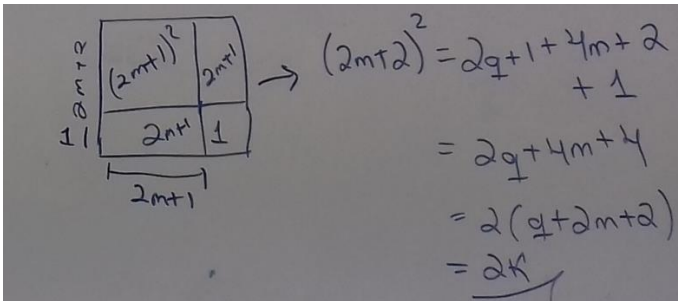 2m+2
(2m+1)² 2m+1
1 2m+1 1
2m+1
→ (2m+2)² = 2q+1+4m+2
+ 1
= 2q+4m+4
= 2(q+2m+2)
= 2K